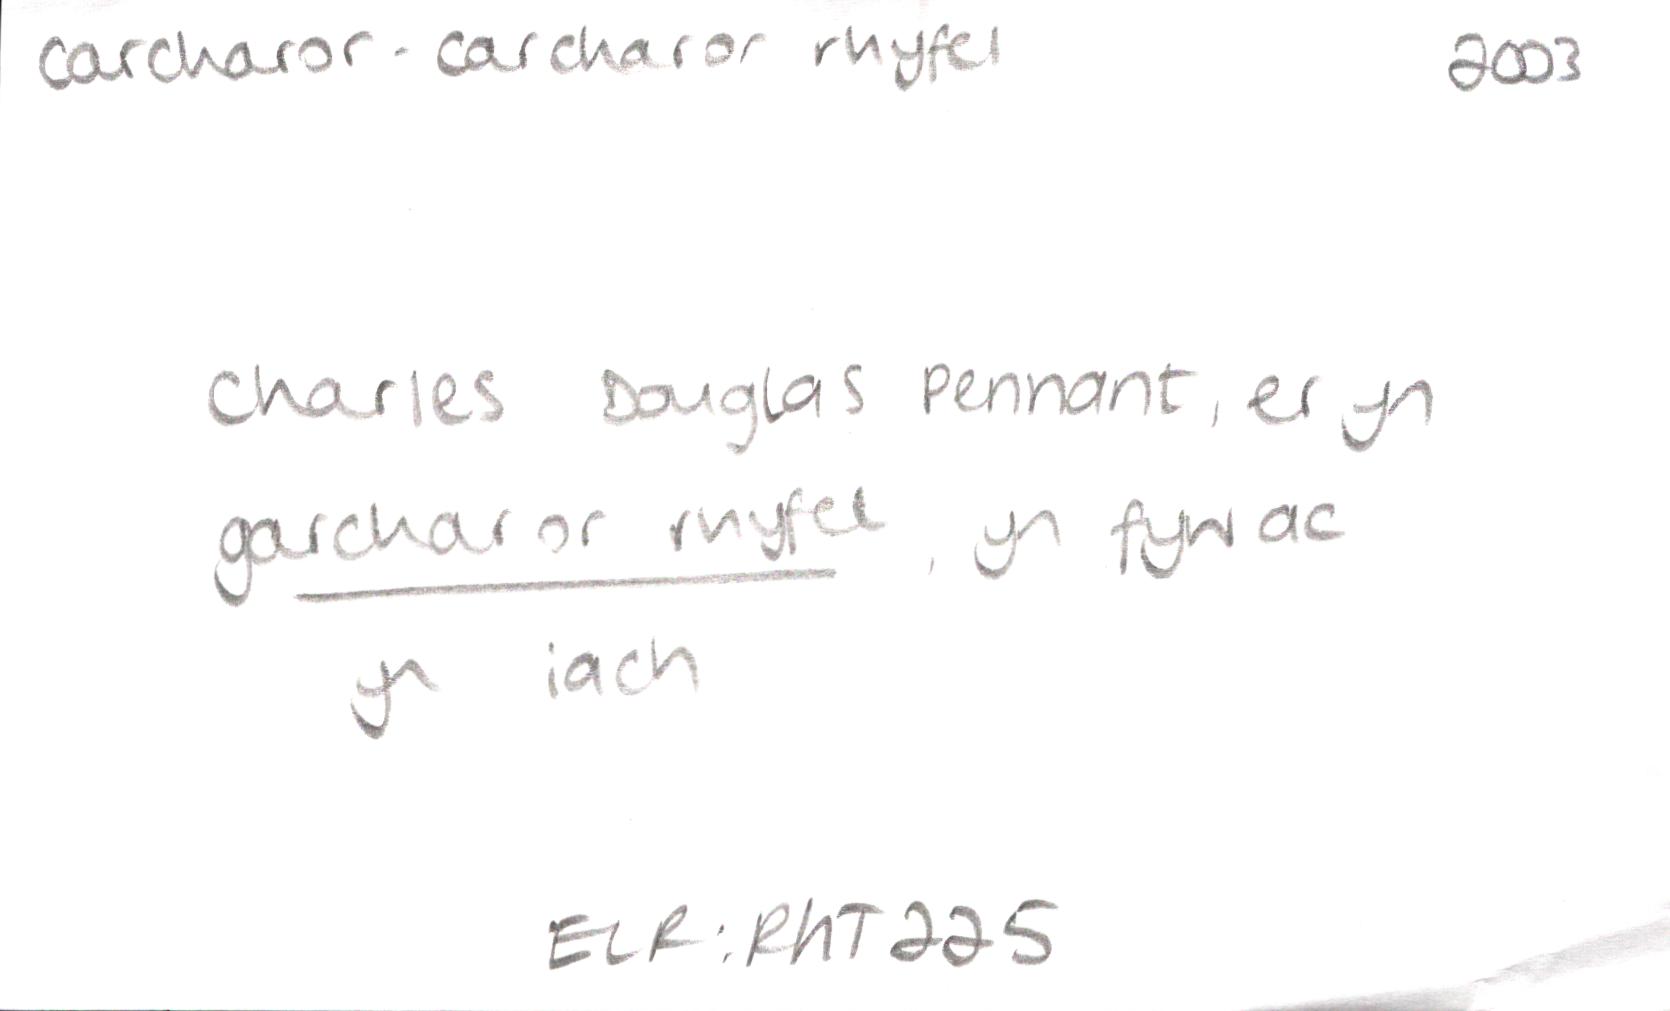 carcharor - carcharor rhyfel 2003
Charles Douglas Pennant, er yn
garcharor rhyfel, yn fyw ac
yn iach
ELR: RhT 225